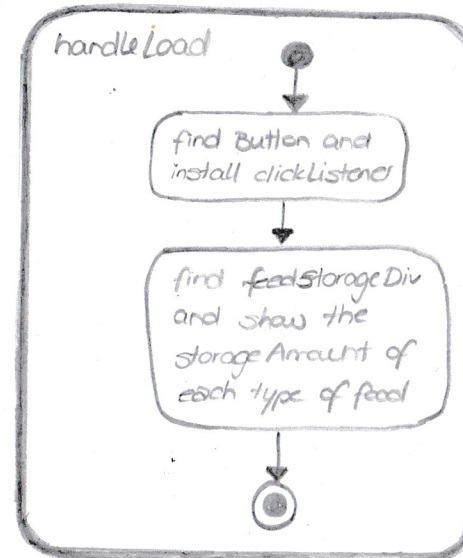 handleLoad
find Button and
install clickListener
find feedStorageDiv
and show the
storageAmount of
each type of feed